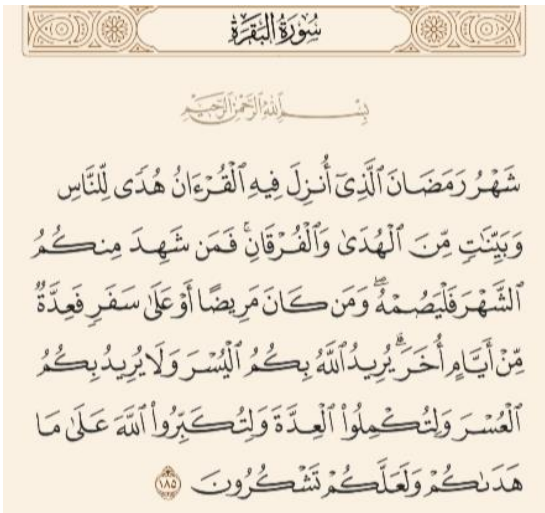 سُورَةُ البَقَرَةِ
بِسْمِ ٱللَّهِ ٱلرَّحْمَٰنِ ٱلرَّحِيمِ
شَهْرُ رَمَضَانَ ٱلَّذِىٓ أُنزِلَ فِيهِ ٱلْقُرْءَانُ هُدًى لِّلنَّاسِ
وَبَيِّنَٰتٍ مِّنَ ٱلْهُدَىٰ وَٱلْفُرْقَانِ ۚ فَمَن شَهِدَ مِنكُمُ
ٱلشَّهْرَ فَلْيَصُمْهُ ۖ وَمَن كَانَ مَرِيضًا أَوْ عَلَىٰ سَفَرٍ فَعِدَّةٌ
مِّنْ أَيَّامٍ أُخَرَ ۗ يُرِيدُ ٱللَّهُ بِكُمُ ٱلْيُسْرَ وَلَا يُرِيدُ بِكُمُ
ٱلْعُسْرَ وَلِتُكْمِلُوا۟ ٱلْعِدَّةَ وَلِتُكَبِّرُوا۟ ٱللَّهَ عَلَىٰ مَا
هَدَىٰكُمْ وَلَعَلَّكُمْ تَشْكُرُونَ ١٨٥